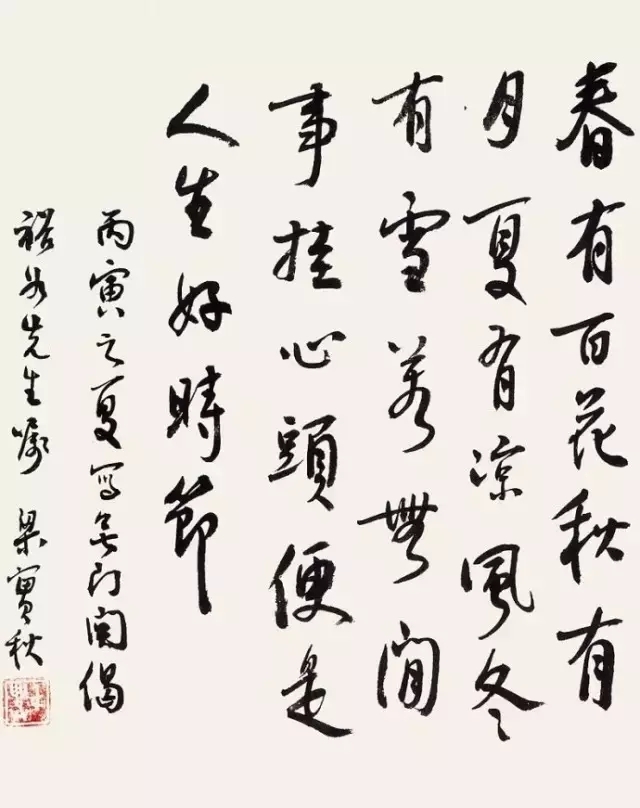 春有百花秋有
月夏有涼風冬
有雪若無閒
事挂心頭便是
人生好時節
丙寅之夏写無门関偈
裕公先生嘱 梁實秋